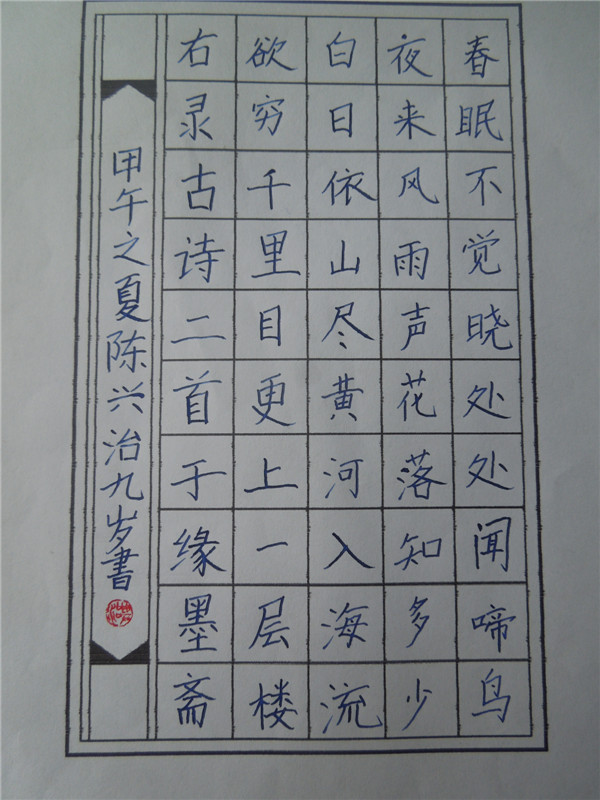 春眠不觉晓处处闻啼鸟
夜来风雨声花落知多少
白日依山尽黄河入海流
欲穷千里目更上一层楼
右录古诗二首于缘墨斋
甲午之夏陈兴治九岁书